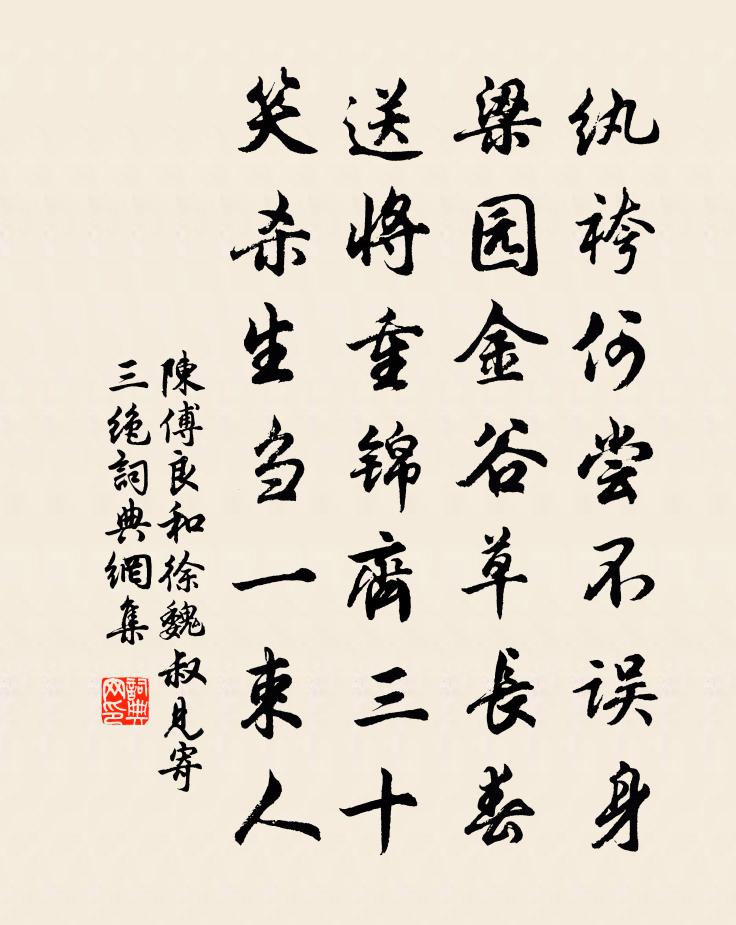 纨袴何尝不误身
梁园金谷草長春
送將重锦齊三十
笑杀生刍一束人
陳傅良和徐魏叔見寄
三绝詞典網集
詞典
网印